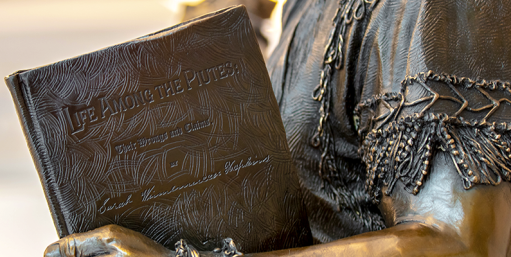 LIFE AMONG THE PIUTES:
Their Wrongs and Claims
of
Sarah Winnemucca Hopkins